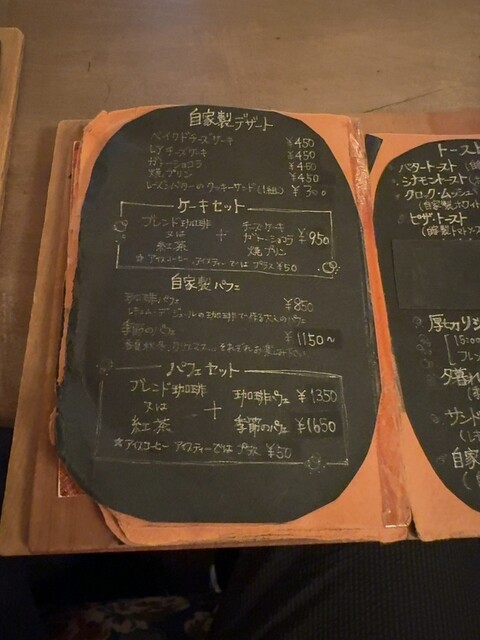 自家製デザート
ベイクドチーズケーキ ¥450
レアチーズケーキ ¥450
ガトーショコラ ¥450
焼プリン ¥450
レーズンバターのクッキーサンド(1組) ¥300
ケーキセット
ブレンド珈琲 又は 紅茶 + チーズケーキ ガトーショコラ 焼プリン ¥950
☆アイスコーヒー、アイスティーではプラス¥50
自家製パフェ
珈琲パフェ ¥850
の珈琲で作る大人のパフェ
季節のパフェ ¥1150~
パフェセット
ブレンド珈琲 又は 紅茶 + 珈琲パフェ ¥1350
季節のパフェ ¥1650
☆アイスコーヒー アイスティーではプラス ¥50
トースト
バタートースト
シナモントースト
クロック・ムッシュ
(自家製ホワイト
ピザトースト
(自家製トマトソース
厚切り
夕暮れ
サンド
自家